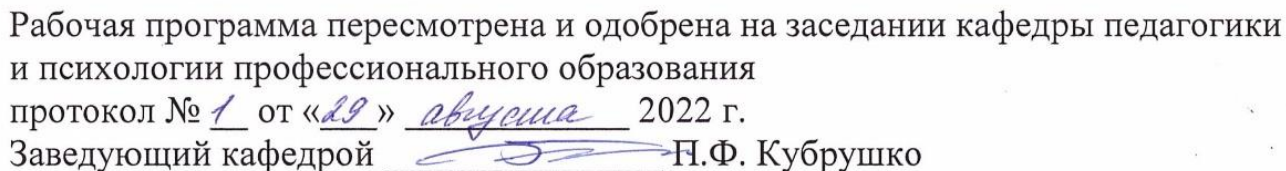 Рабочая программа пересмотрена и одобрена на заседании кафедры педагогики
и психологии профессионального образования
протокол № 1 от «29» августа 2022 г.
Заведующий кафедрой П.Ф. Кубрушко